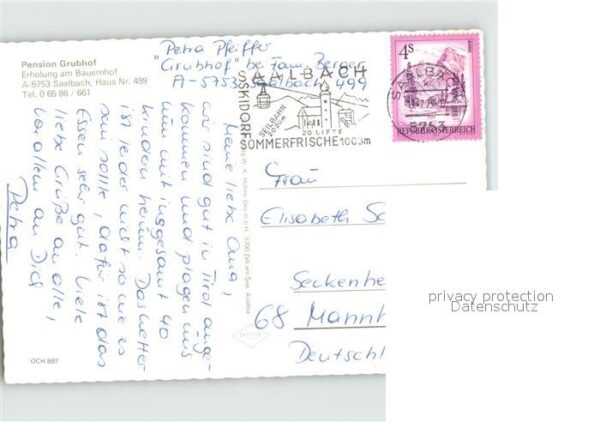 Pension Grubhof
Erholung am Bauernhof
A-5753 Saalbach, Haus Nr. 499
Tel. 0 65 86 / 661
Petra Pfeiffer
"Grubhof" bei Fam. Berger
A-5753 Saalbach 499
SAALBACH
SKIDORF
SEILBAHN
2020m
20 LIFTE
SOMMERFRISCHE 1003m
4S
REPUBLIK ÖSTERREICH
SAALBACH
5753
Meine liebe Oma,
wir sind gut in Tirol ange-
kommen und plagen uns
nun mit insgesamt 40
Kindern herum. Das Wetter
ist leider nicht so wie es
sein sollte, dafür ist das
Essen sehr gut. Viele
liebe Grüße an alle,
vor allem an Dich
Petra
Frau
Elisabeth
Seckenhe
68 Mannh
Deutschl
OCH 897
privacy protection
Datenschutz